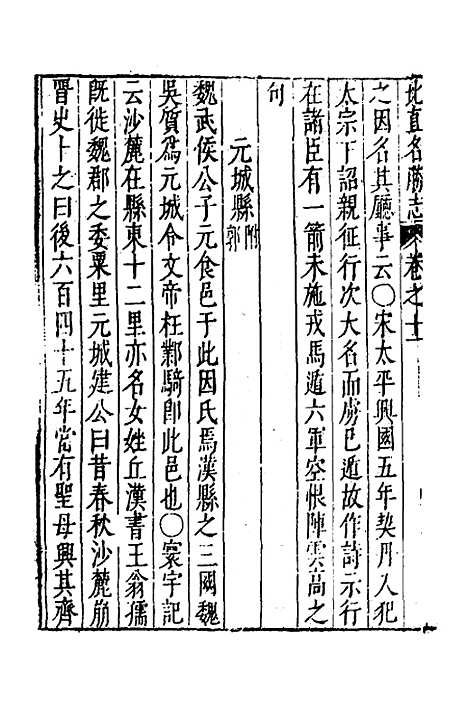 北直名勝志 卷之十二
之因名其廳事云〇宋太平興國五年契丹入犯
太宗下詔親征行次大名而虜已遁故作詩示行
在諸臣有一箭未施戎馬遁六軍空恨陣雲高之
句
元城縣附郭
魏武侯公子元食邑于此因氏焉漢縣之三國魏
吳質為元城令文帝枉鄴騎即此邑也〇寰宇記
云沙麓在縣東十二里亦名女姓丘漢書王翁孺
既徙魏郡之委粟里元城建公曰昔春秋沙麓崩
晉史卜之曰後六百四十五年當有聖母興其齊